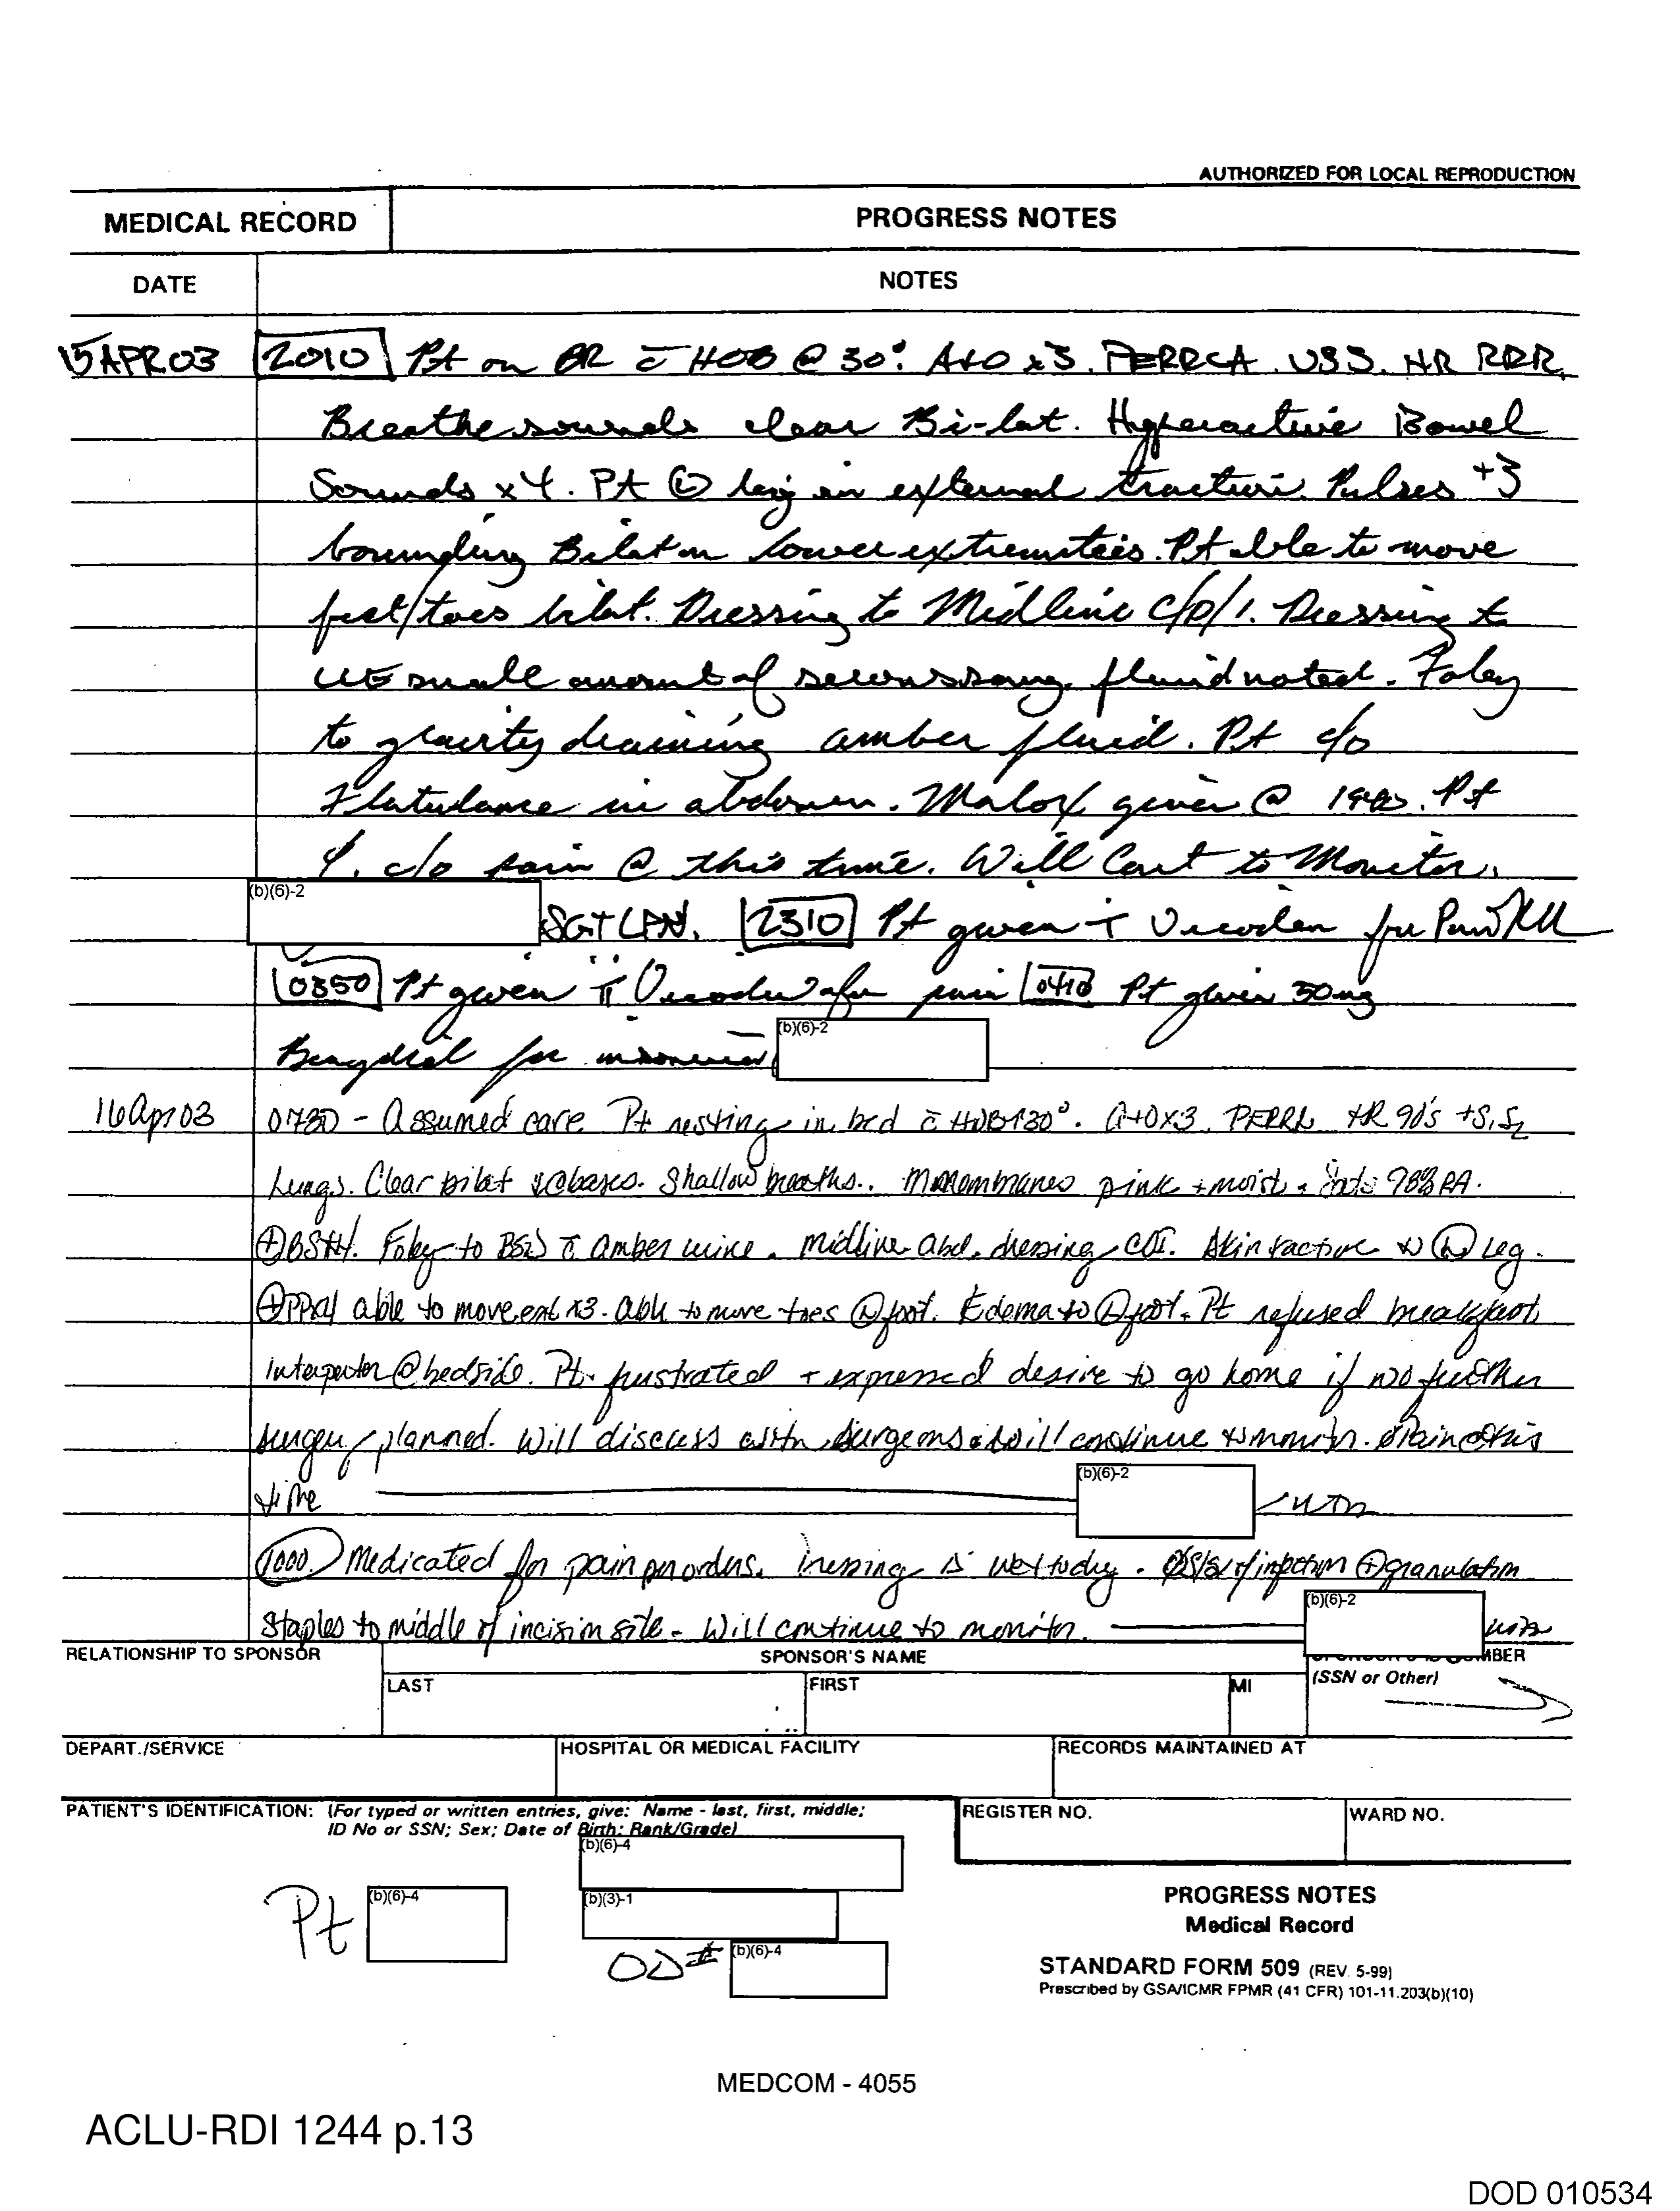 AUTHORIZED FOR LOCAL REPRODUCTION
MEDICAL RECORD PROGRESS NOTES
DATE NOTES
15 APR 03 2010 Pt on BR c̄ HOB @ 30°. A+O x3. PERRLA. VSS. HR RRR.
Breathe sounds clear Bi-lat. Hyperactive Bowel
Sounds x 4. Pt Ⓛ leg in external traction. Pulses +3
bounding Bilat in lower extremities. Pt able to move
feet/toes bilat. Dressing to Midline c/d/i. Dressing to
small amount of fluid noted. Foley
to gravity draining amber fluid. Pt c/o
Flatulance in abdomen. Malox given @ Pt
c/o pain @ this time. Will Cont to Monitor.
(b)(6)-2 SGT LPN. 2310 Pt given T Vicoden for Pain
0350 Pt given II Vicoden for pain 0410 Pt given 50mg
Benydral for (b)(6)-2
16 Apr 03 0730 - Assumed care Pt resting in bed c̄ HOB↑30°. A+Ox3. PERRL HR 90's +S1S2
Lungs. Clear bilat bases. Shallow breaths. membranes pink + moist. Sats 98% RA.
⊕BSx4. Foley to BSD c̄ amber urine. midline abd. dressing CDI. Skin traction to leg.
⊕PPx4 able to move ext x3. able to move toes foot. Edema to foot. Pt refused breakfast.
Interpretor @ bedside. Pt. frustrated + expressed desire to go home if no further
surgery planned. Will discuss with surgeons + will continue to monitor. Ø Pain @ this
time (b)(6)-2
1000. Medicated for pain per orders. Dressing Δ wet to dry. Ø S/S of infection ⊕ granulation
Staples to middle of incision site - Will continue to monitor. (b)(6)-2
RELATIONSHIP TO SPONSOR SPONSOR'S NAME
LAST FIRST MI (SSN or Other)
DEPART./SERVICE HOSPITAL OR MEDICAL FACILITY RECORDS MAINTAINED AT
PATIENT'S IDENTIFICATION: (For typed or written entries, give: Name - last, first, middle; REGISTER NO. WARD NO.
ID No or SSN; Sex; Date of Birth; Rank/Grade)
(b)(6)-4
Pt (b)(6)-4 (b)(3)-1
OD# (b)(6)-4
PROGRESS NOTES
Medical Record
STANDARD FORM 509 (REV. 5-99)
Prescribed by GSA/ICMR FPMR (41 CFR) 101-11.203(b)(10)
MEDCOM - 4055
ACLU-RDI 1244 p.13
DOD 010534